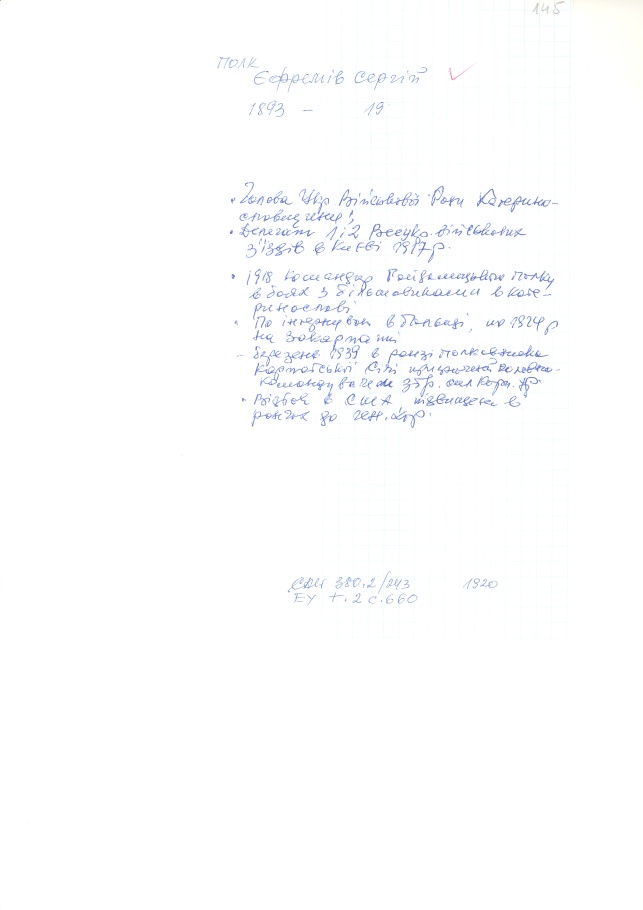 145
ПОЛК
Єфремів Сергій
1893 – 19
• Голова Укр Військової Ради Катерино-
славщини;
• Делегат 1 і 2 Всеукр. військових
з'їздів в Києві 1917 р.
• 1918 командир Гайдамацького полку
в боях з більшовиками в Кате-
ринославі
• По інтернуван в Польщі, по 1924 р
на Закарпатті
– березень 1939 в ранзі полковника
Карпатської Січі призначений головно-
командувачем збр. сил Карп. Укр
• Виїхав в США підвищен в
рангах до ген. хор.
380.2/243 1920
ЕУ т. 2 с. 660